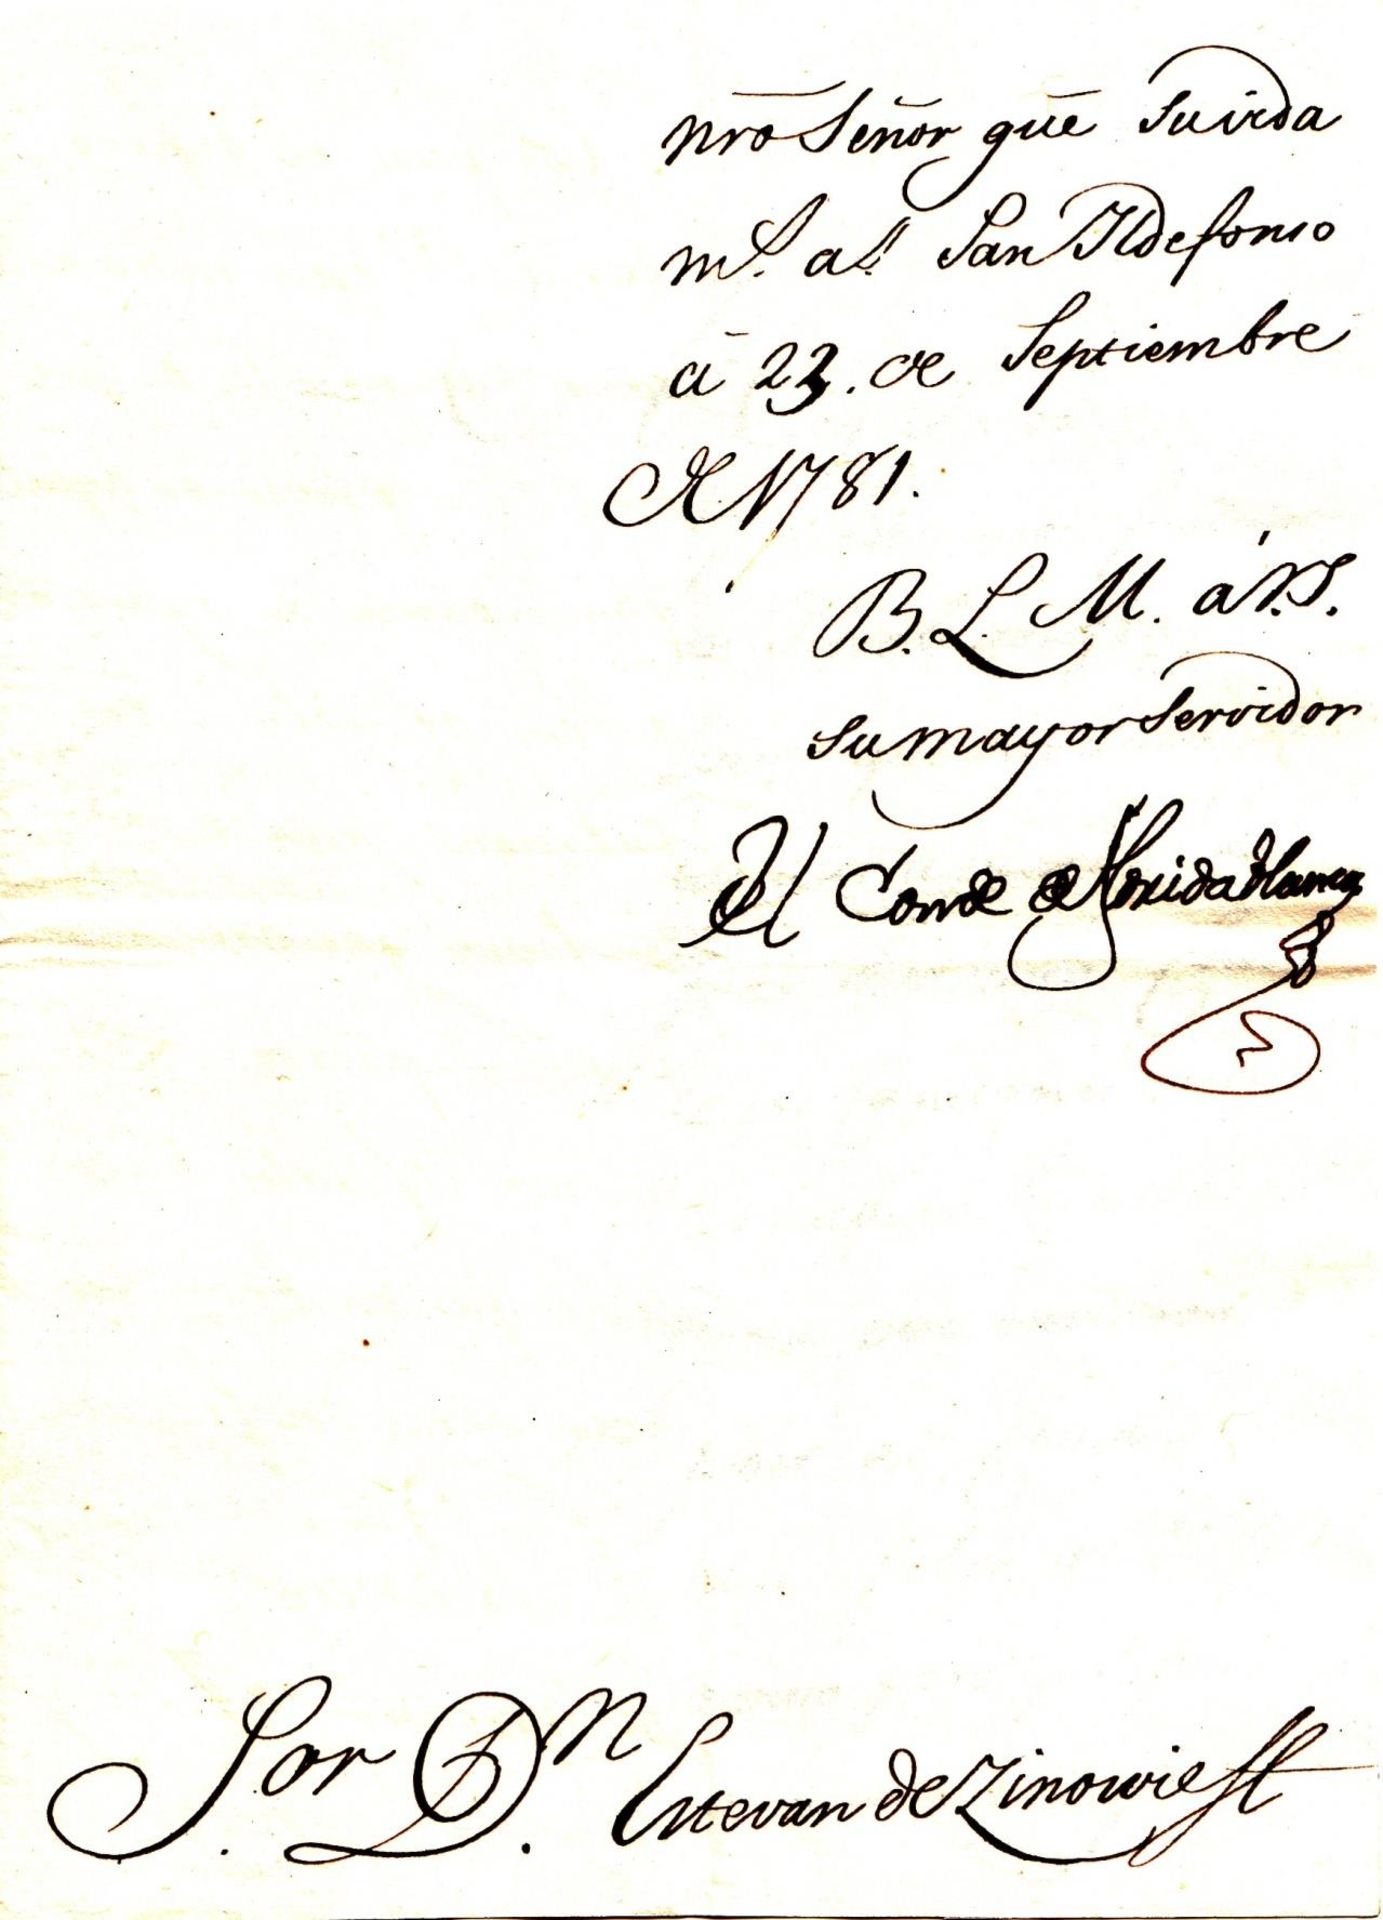 nrõ Señor gũe su vida
ms. as. San Ildefonso
à 23. de Septiembre
de 1781.
B. L. M. á V.S.
su mayor servidor
El Conde de Floridablanca
S.or D.n Estevan de Zinowieff